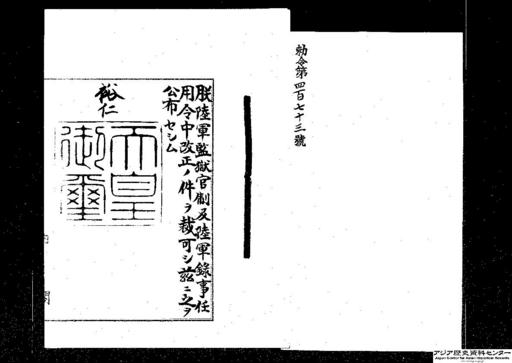 勅令第四百七十三號
朕陸軍監獄官制及陸軍錄事任
用令中改正ノ件ヲ裁可シ茲ニ之ヲ
公布セシム
裕仁
天皇
御璽
閣
アジア歴史資料センター
Japan Center for Asian Historical Records